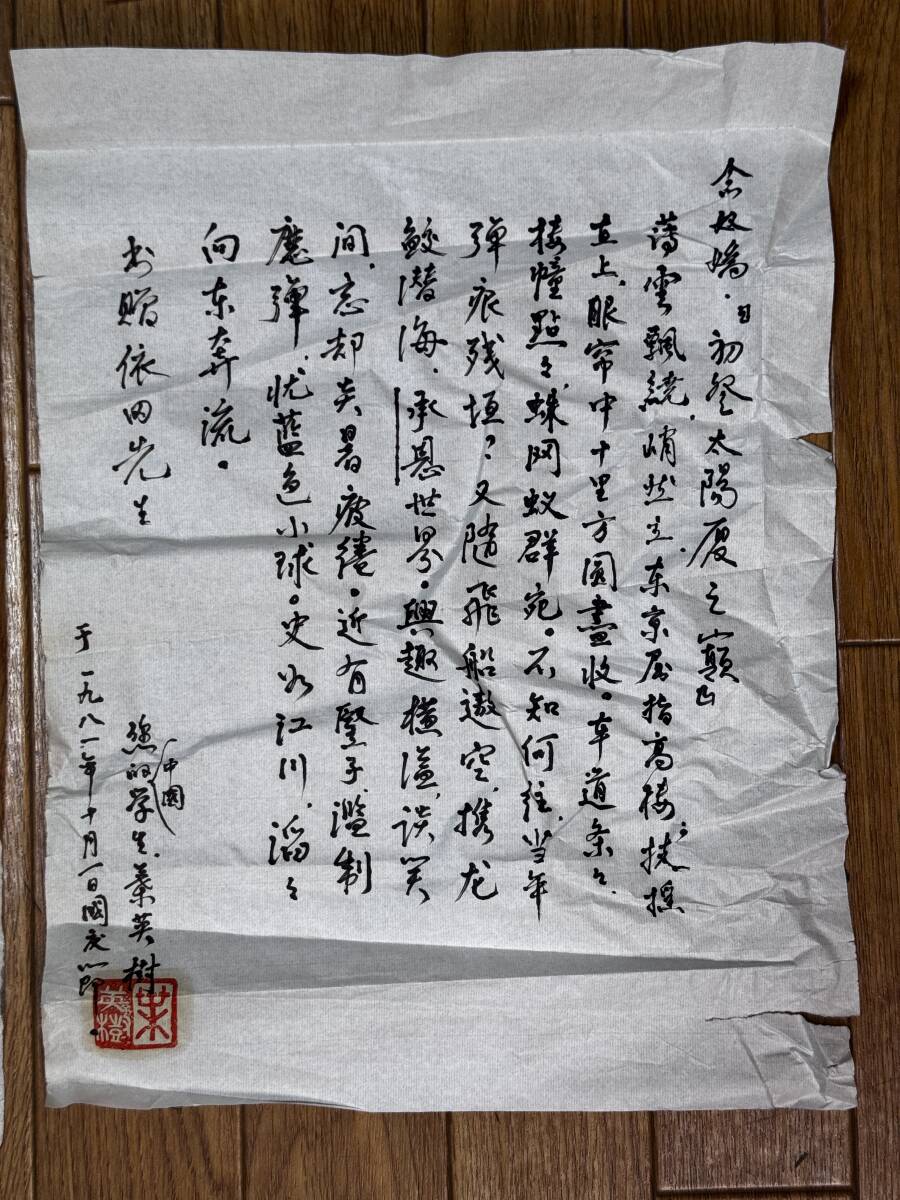 念奴娇·初登太陽厦之巔
薄雲飄繞，悄然立，东京屈指高楼，扶摇
直上，眼帘中十里方圆盡收。车道条々，
楼幢點々，蛛网蚁群宛。不知何往，当年
弹痕残垣？又随飛船遨空，携龙
鲛潜海，承恳世界。興趣横溢，谈笑
间，忘却炎暑疲倦。近有竪子，滥制
魔弹，忧藍色小球。史如江川，滔々
向东奔流。
书赠依田先生
您的中國学生
英树
于一九八一年十月一日國庆节
英樹